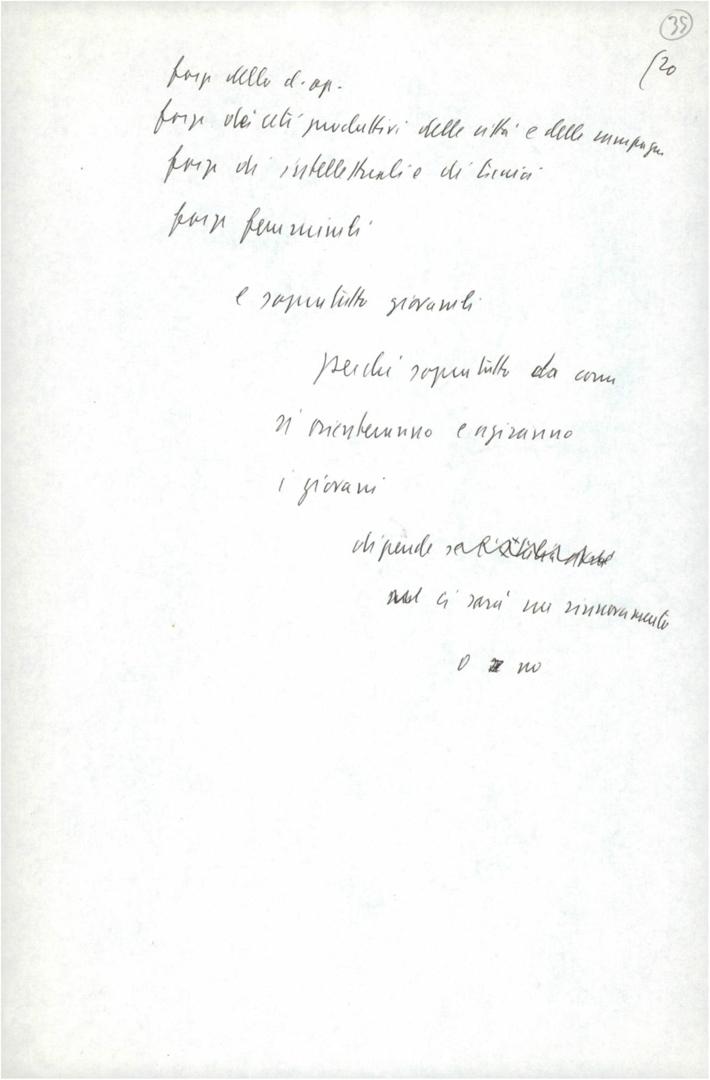 35
20
forze della cl. op.
forze dei ceti produttivi delle città e delle campagne
forze di intellettuali e di tecnici
forze femminili
e soprattutto giovanili
perché soprattutto da come
si orienteranno e agiranno
i giovani
dipende se
ci sarà un rinnovamento
o no